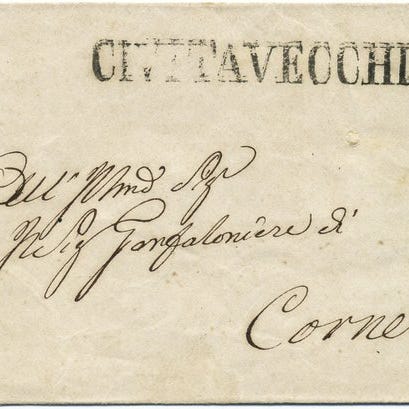 CIVITAVECCHI
All' Illmo Sigr
Sig Gonfaloniere di
Corne